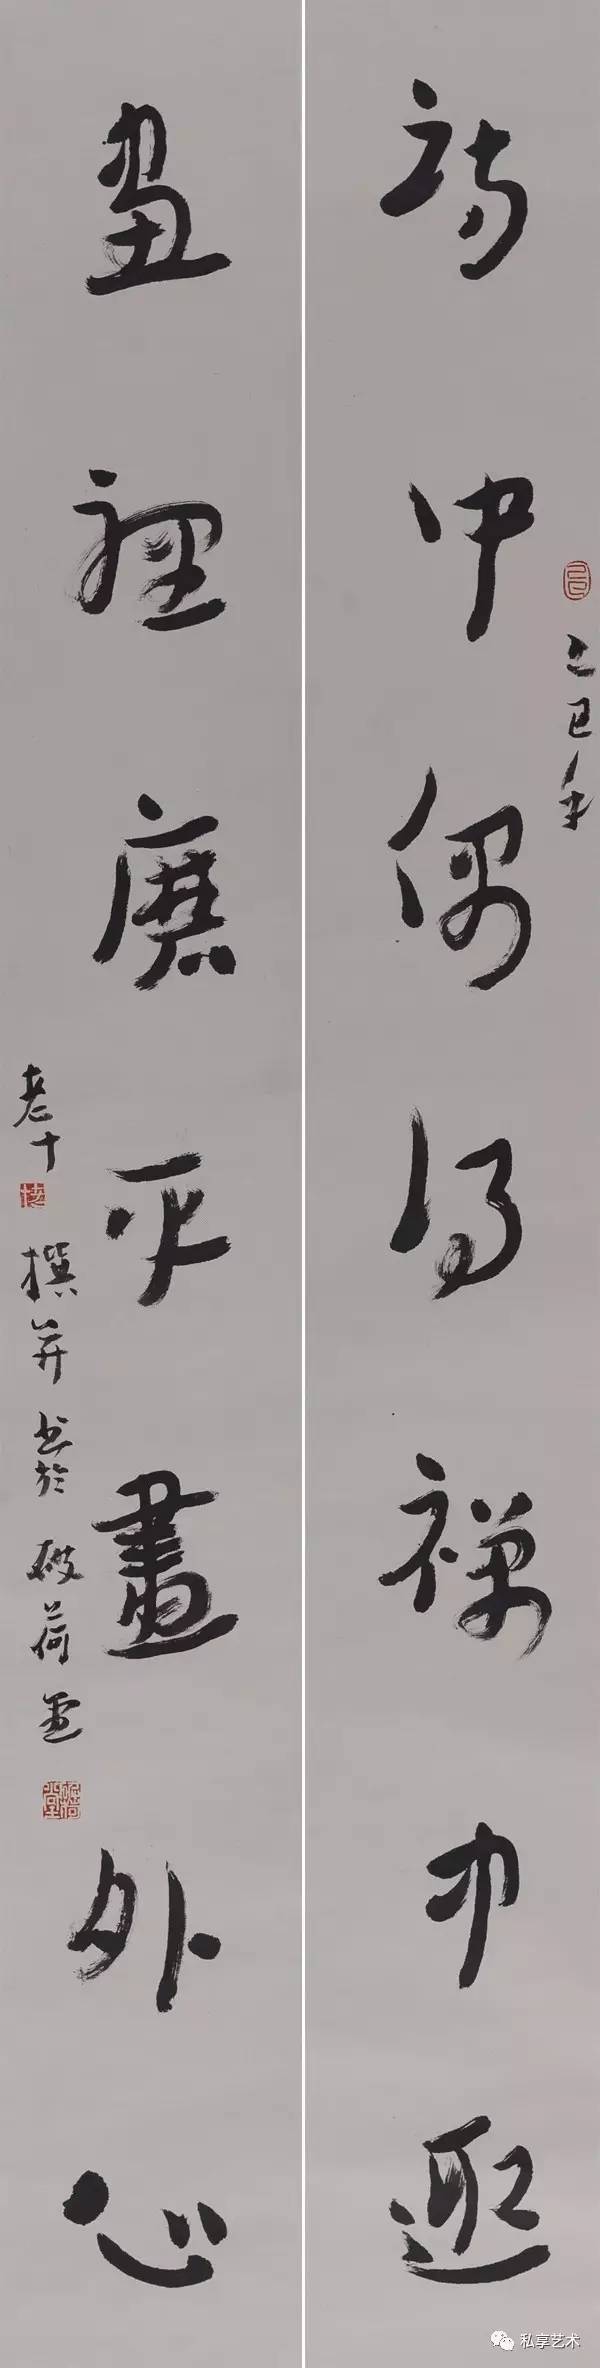 詩中偶得禪中趣
乙巳年
畫裡平畫外心
老十
撰并书於破荷堂
私享艺术